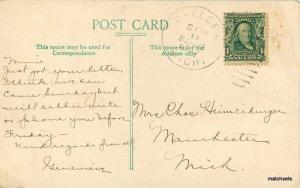 POST CARD
This space may be used for
Correspondence
This space is for the
Address only
SEP
11
MICH.
Minnie
Just got your letter,
think we can
come Sunday but
will either write
or phone you before
Friday—
Kind regards from all
Genevieve
Mrs Chas Heimerdinger
Manchester
Mich.
matchsets